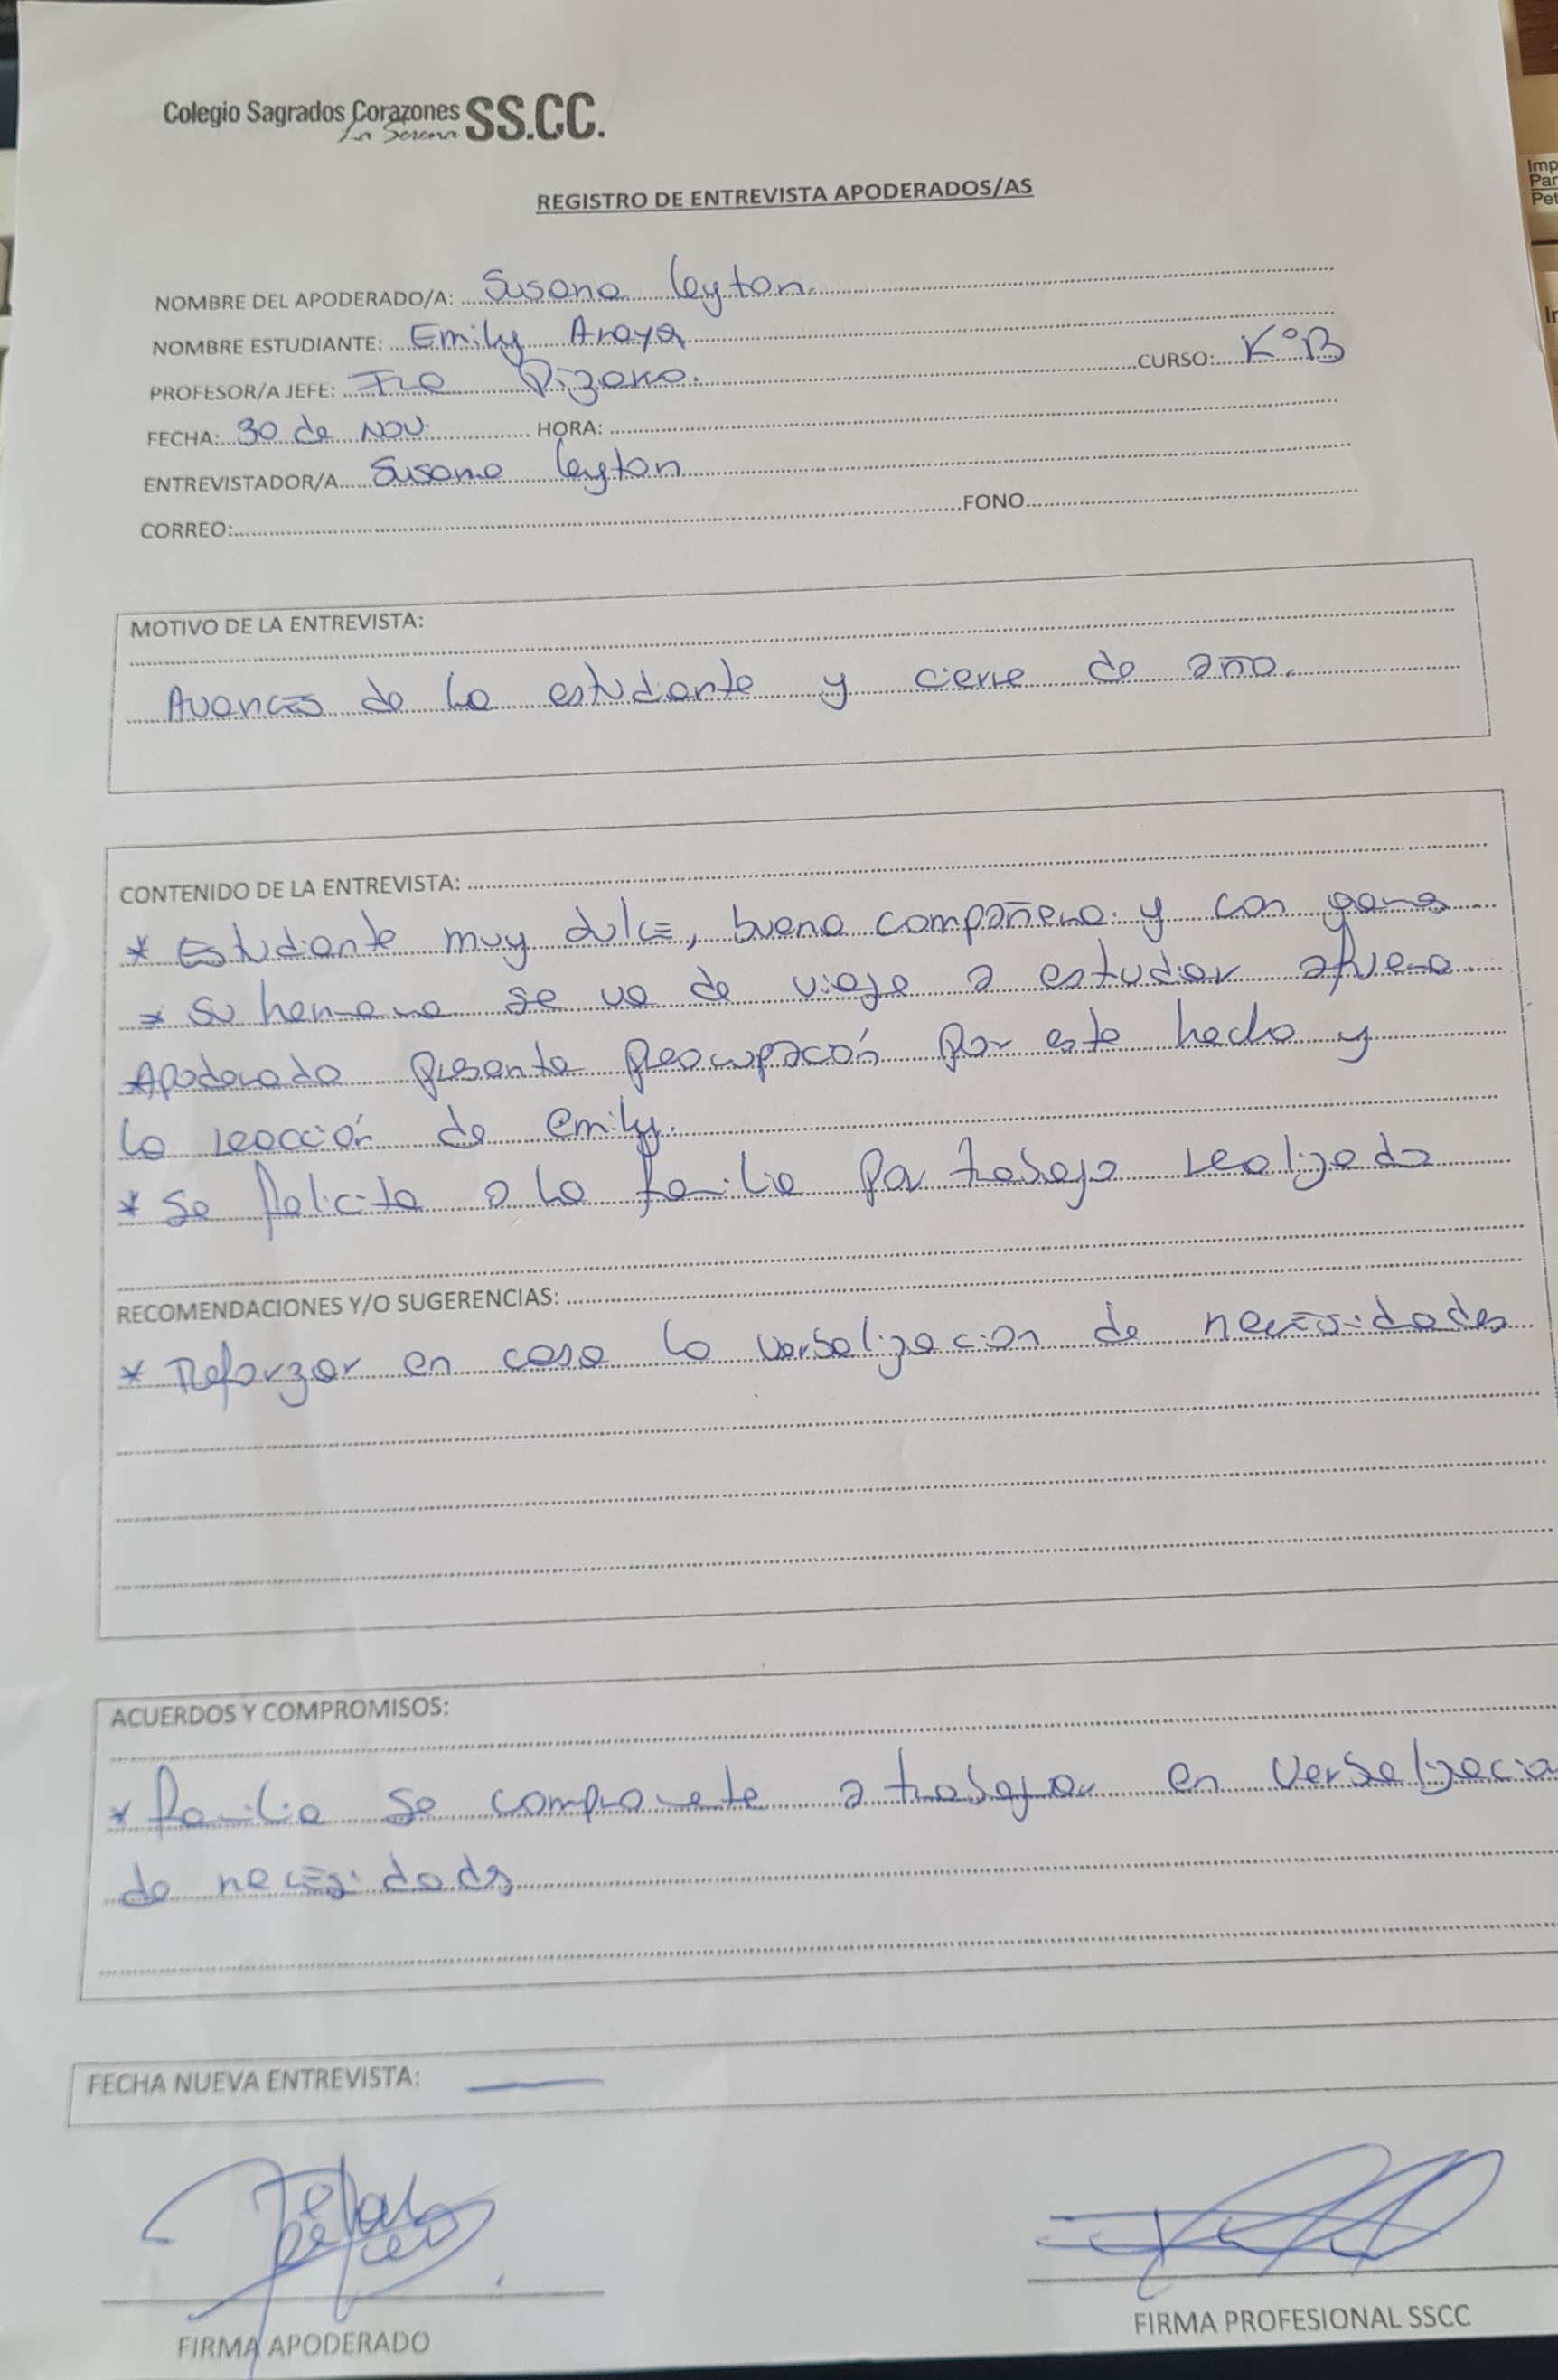 Colegio Sagrados Corazones SS.CC.
La Serena
REGISTRO DE ENTREVISTA APODERADOS/AS
NOMBRE DEL APODERADO/A: Susana Leyton.
NOMBRE ESTUDIANTE: Emily Araya
PROFESOR/A JEFE: Pizarro. CURSO: K°B
FECHA: 30 de Nov. HORA:
ENTREVISTADOR/A Susana Leyton
CORREO: FONO
MOTIVO DE LA ENTREVISTA:
Avances de la estudiante y cierre de año.
CONTENIDO DE LA ENTREVISTA:
* Estudiante muy dulce, buena compañera y con ganas
* Su hermana se va de viaje a estudiar afuera.
Apoderado presenta preocupación por este hecho y
la reacción de Emily.
* Se felicita a la familia por trabajo realizado
RECOMENDACIONES Y/O SUGERENCIAS:
* Reforzar en casa la verbalización de necesidades
ACUERDOS Y COMPROMISOS:
* Familia se compromete a trabajar en verbalizació
de necesidades
FECHA NUEVA ENTREVISTA: —
FIRMA APODERADO
FIRMA PROFESIONAL SSCC
Imp
Par
Pet